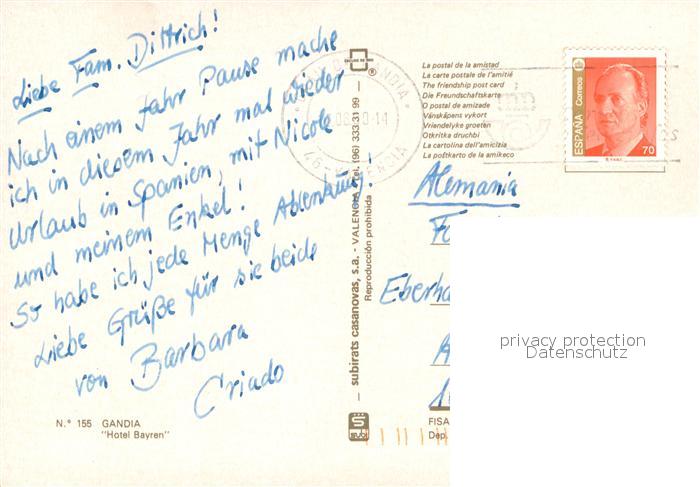 Liebe Fam. Dittrich!
Nach einem Jahr Pause mache
ich in diesem Jahr mal wieder
Urlaub in Spanien, mit Nicole
und meinem Enkel!
So habe ich jede Menge Ablenkung!
Liebe Grüße für sie beide
von Barbara
Criado
N.° 155 GANDIA
"Hotel Bayren"
subirats casanovas, s.a. - VALENCIA - tel. (96) 333 31 99 -
Reproducción prohibida
La postal de la amistad
La carte postale de l'amitié
The friendship post card
Die Freundschaftskarte
O postal de amizade
Vänskåpens vykort
Vriendelyke groeten
Otkritka druchbi
La cartolina dell'amicizia
La poŝtkarto de la amikeco
ESPAÑA Correos
70
GANDIA
46 VALENCIA
Alemania
Eberha
FISA
Dep.
privacy protection
Datenschutz